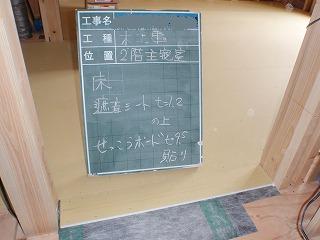 工事名
工種 木工事
位置 2階主寝室
床
遮音シートt=1.2
の上
せっこうボードt=9.5
貼り